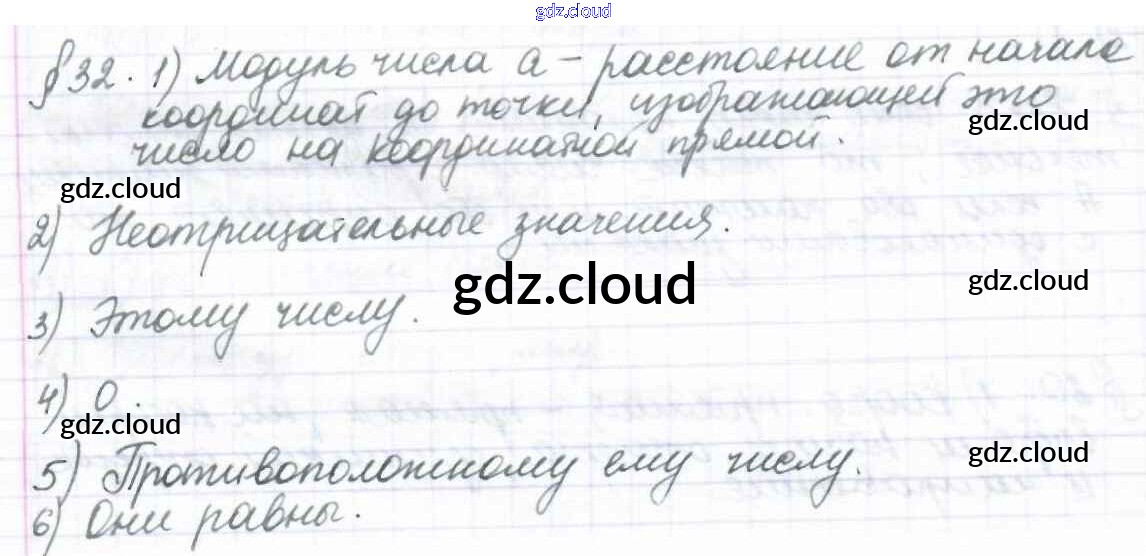 gdz.cloud
§ 32. 1) Модуль числа a – расстояние от начала
координат до точки, изображающей это
gdz.cloud
число на координатной прямой.
gdz.cloud
2) Неотрицательные значения.
gdz.cloud
gdz.cloud
3) Этому числу.
4) 0.
gdz.cloud
gdz.cloud
5) Противоположному ему числу.
6) Они равны.